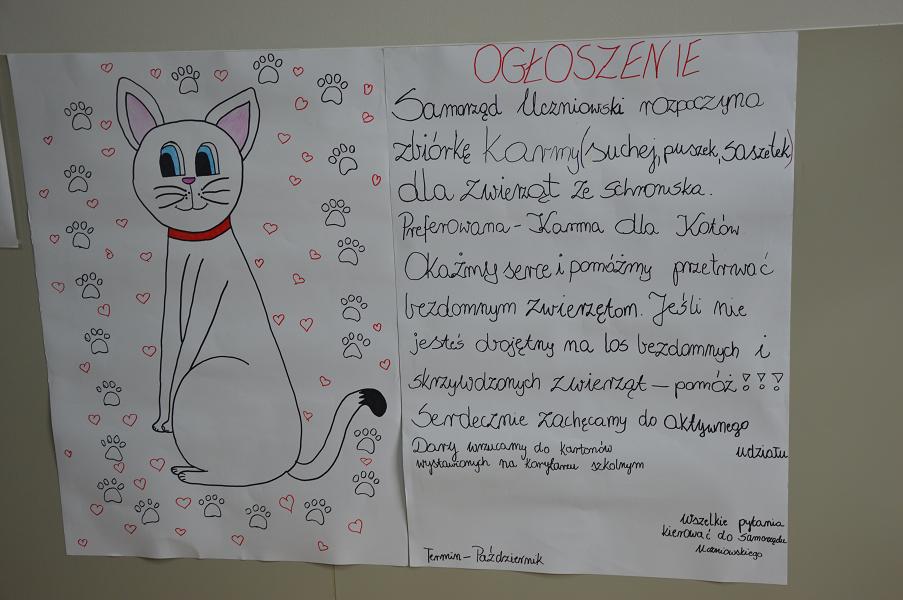 OGŁOSZENIE
Samorząd Uczniowski rozpoczyna
zbiórkę Karmy (suchej, puszek, saszetek)
dla zwierząt ze schroniska.
Preferowana - Karma dla Kotów
Okażmy serce i pomóżmy przetrwać
bezdomnym zwierzętom. Jeśli nie
jesteś obojętny na los bezdomnych i
skrzywdzonych zwierząt - pomóż!!!
Serdecznie zachęcamy do aktywnego
udziału
Dary wrzucamy do kartonów
wystawionych na korytarzu szkolnym
Wszelkie pytania
kierować do Samorządu
Uczniowskiego
Termin - Październik